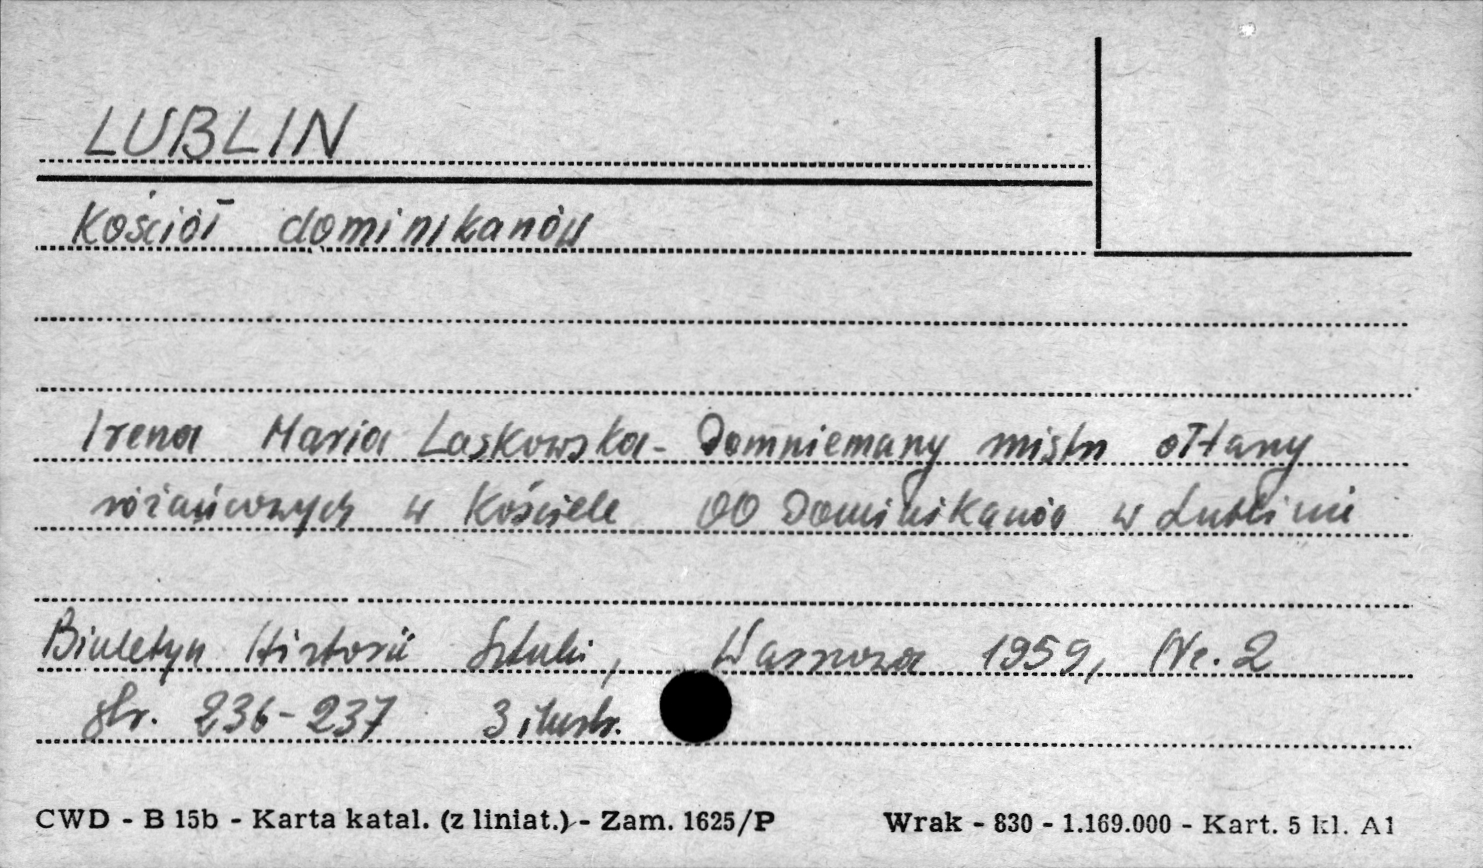 LUBLIN
Kościół dominikanów
Irena Maria Laskowska - Domniemany mistrz ołtarzy
różańcowych w Kościele OO Dominikanów w Lublinie
Biuletyn Historii Sztuki, Warszawa 1959, Nr. 2
str. 236-237 3 ilustr.
CWD - B 15b - Karta katal. (z liniat.) - Zam. 1625/P Wrak - 830 - 1.169.000 - Kart. 5 kl. A1